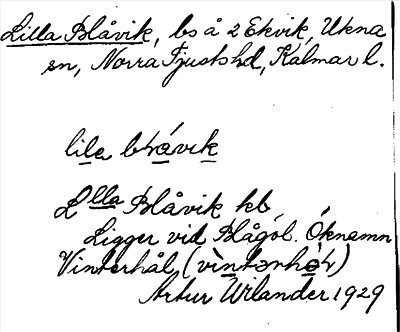 Lilla Blåvik, bs å 2 Ekvik, Ukna
sn, Norra Tjusts hd, Kalmar l.
lila blåvik
Llla Blåvik hb
Ligger vid Blågöl. Öknamn
Vinterhål (vìntərhoł)
Artur Wilander 1929